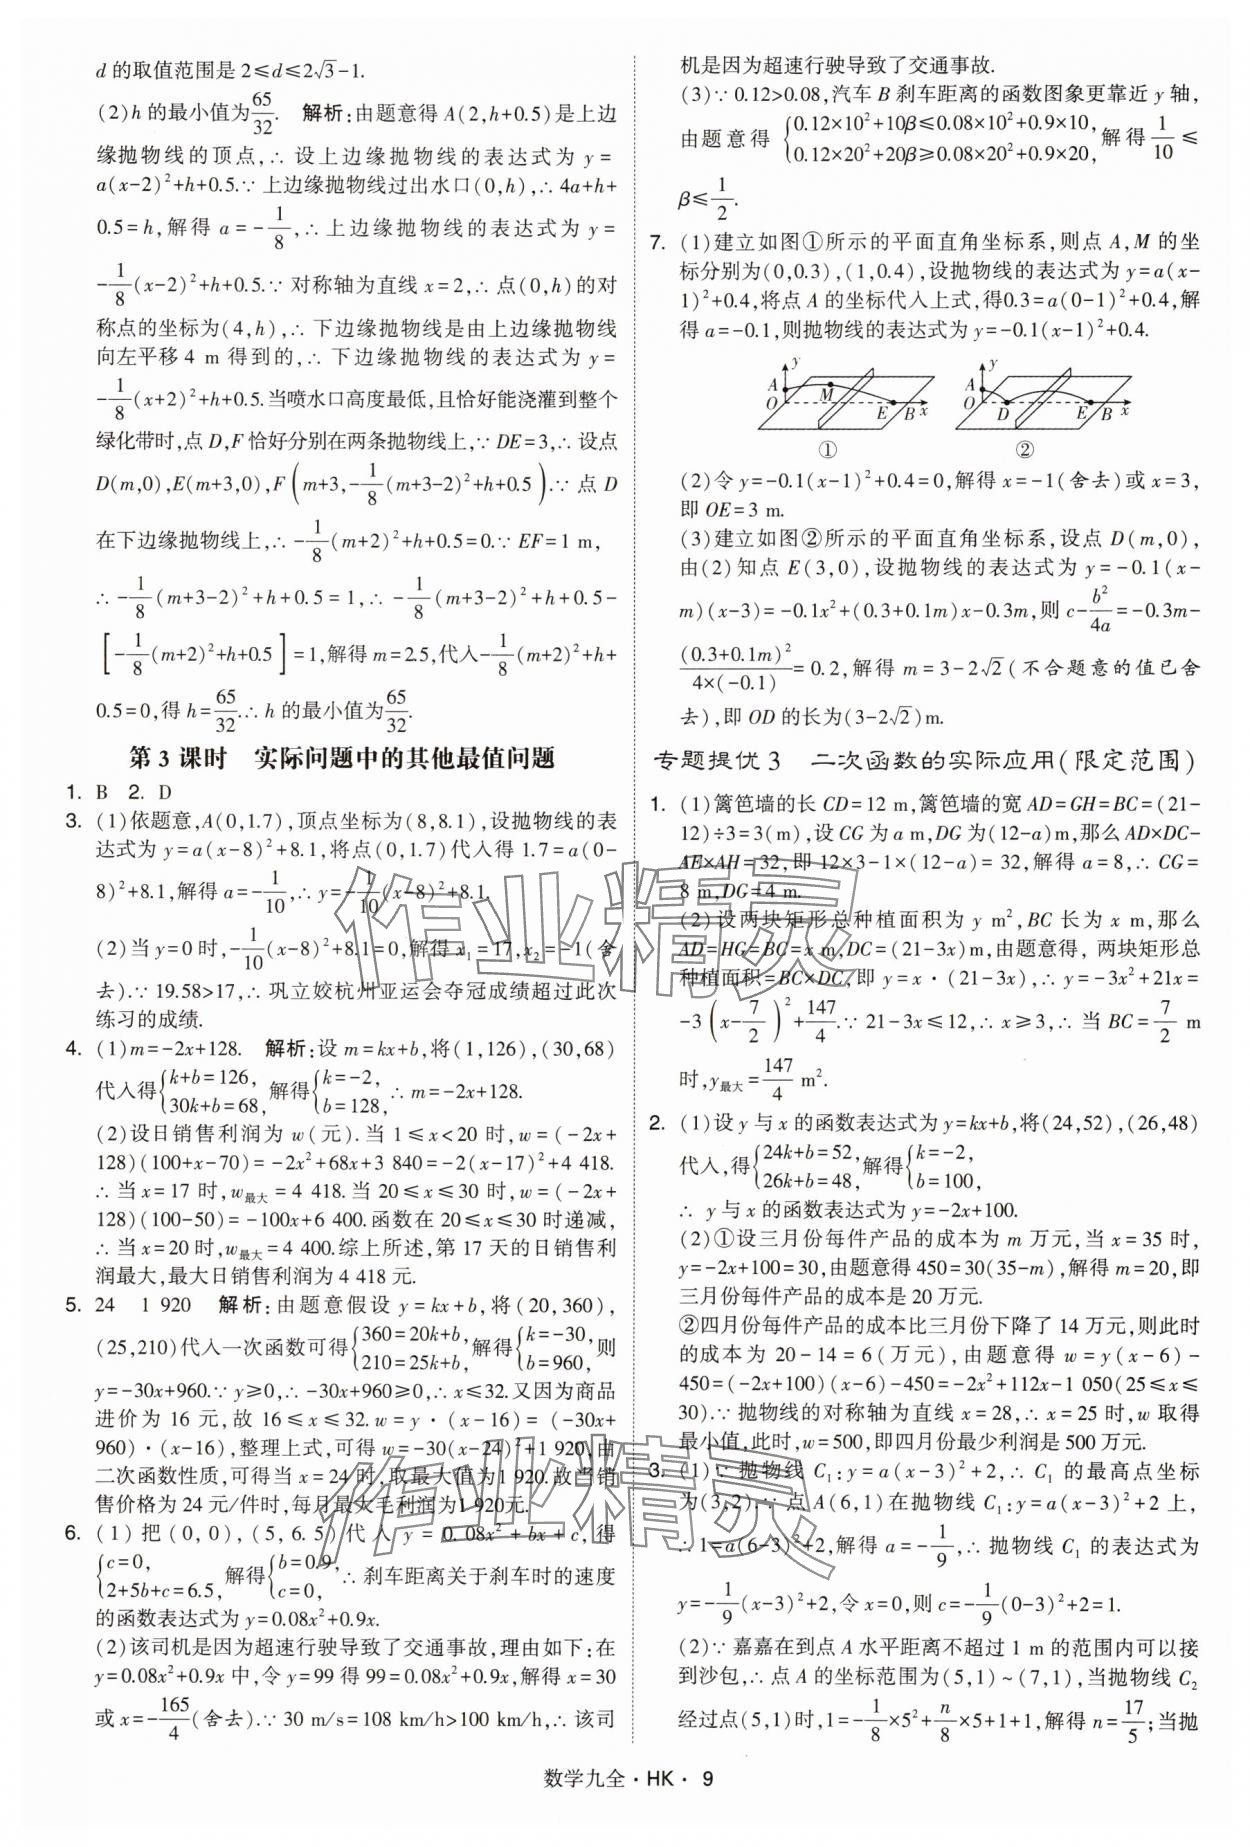 d 的取值范围是 2≤d≤2√3-1.
(2)h 的最小值为65/32. 解析:由题意得 A(2,h+0.5)是上边
缘抛物线的顶点,∴ 设上边缘抛物线的表达式为 y=
a(x-2)²+h+0.5.∵ 上边缘抛物线过出水口(0,h),∴ 4a+h+
0.5=h,解得 a=-1/8,∴ 上边缘抛物线的表达式为 y=
-1/8(x-2)²+h+0.5.∵ 对称轴为直线 x=2,∴ 点(0,h)的对
称点的坐标为(4,h),∴ 下边缘抛物线是由上边缘抛物线
向左平移4 m 得到的,∴ 下边缘抛物线的表达式为 y=
-1/8(x+2)²+h+0.5.当喷水口高度最低,且恰好能浇灌到整个
绿化带时,点 D,F 恰好分别在两条抛物线上,∵ DE=3,∴ 设点
D(m,0),E(m+3,0),F(m+3,-1/8(m+3-2)²+h+0.5).∵ 点 D
在下边缘抛物线上,∴ -1/8(m+2)²+h+0.5=0.∵ EF=1 m,
∴ -1/8(m+3-2)²+h+0.5=1,∴ -1/8(m+3-2)²+h+0.5-
[-1/8(m+2)²+h+0.5]=1,解得 m=2.5,代入-1/8(m+2)²+h+
0.5=0,得 h=65/32.∴ h 的最小值为65/32.
第 3 课时 实际问题中的其他最值问题
1. B 2. D
3. (1)依题意,A(0,1.7),顶点坐标为(8,8.1),设抛物线的表
达式为 y=a(x-8)²+8.1,将点(0,1.7)代入得 1.7=a(0-
8)²+8.1,解得 a=-1/10,∴ y=-1/10(x-8)²+8.1.
(2)当 y=0 时,-1/10(x-8)²+8.1=0,解得 x₁=17,x₂=-1(舍
去).∵ 19.58>17,∴ 巩立姣杭州亚运会夺冠成绩超过此次
练习的成绩.
4. (1)m=-2x+128. 解析:设 m=kx+b,将(1,126),(30,68)
代入得{k+b=126, 30k+b=68, 解得{k=-2, b=128, ∴ m=-2x+128.
(2)设日销售利润为 w(元).当 1≤x<20 时,w=(-2x+
128)(100+x-70)=-2x²+68x+3 840=-2(x-17)²+4 418.
∴ 当 x=17 时,w最大=4 418.当 20≤x≤30 时,w=(-2x+
128)(100-50)=-100x+6 400.函数在 20≤x≤30 时递减,
∴ 当 x=20 时,w最大=4 400.综上所述,第 17 天的日销售利
润最大,最大日销售利润为 4 418 元.
5. 24 1 920 解析:由题意假设 y=kx+b,将(20,360),
(25,210)代入一次函数可得{360=20k+b, 210=25k+b, 解得{k=-30, b=960, 则
y=-30x+960.∵ y≥0,∴ -30x+960≥0,∴ x≤32.又因为商品
进价为 16 元,故 16≤x≤32.w=y·(x-16)=(-30x+
960)·(x-16),整理上式,可得 w=-30(x-24)²+1 920,由
二次函数性质,可得当 x=24 时,取最大值为1 920.故当销
售价格为 24 元/件时,每月最大毛利润为1 920元.
6. (1)把(0,0),(5,6.5)代入 y=0.08x²+bx+c,得
{c=0, 2+5b+c=6.5, 解得{b=0.9, c=0, ∴ 刹车距离关于刹车时的速度
的函数表达式为 y=0.08x²+0.9x.
(2)该司机是因为超速行驶导致了交通事故,理由如下:在
y=0.08x²+0.9x 中,令 y=99 得 99=0.08x²+0.9x,解得 x=30
或 x=-165/4(舍去).∵ 30 m/s=108 km/h>100 km/h,∴ 该司
机是因为超速行驶导致了交通事故.
(3)∵ 0.12>0.08,汽车 B 刹车距离的函数图象更靠近 y 轴,
由题意得 {0.12×10²+10β≤0.08×10²+0.9×10, 0.12×20²+20β≥0.08×20²+0.9×20, 解得 1/10≤
β≤1/2.
7. (1)建立如图①所示的平面直角坐标系,则点 A,M 的坐
标分别为(0,0.3),(1,0.4),设抛物线的表达式为 y=a(x-
1)²+0.4,将点 A 的坐标代入上式,得0.3=a(0-1)²+0.4,解
得 a=-0.1,则抛物线的表达式为 y=-0.1(x-1)²+0.4.
y A O M E B x
①
y A O D E B x
②
(2)令 y=-0.1(x-1)²+0.4=0,解得 x=-1(舍去)或 x=3,
即 OE=3 m.
(3)建立如图②所示的平面直角坐标系,设点 D(m,0),
由(2)知点 E(3,0),设抛物线的表达式为 y=-0.1(x-
m)(x-3)=-0.1x²+(0.3+0.1m)x-0.3m,则 c-b²/4a=-0.3m-
(0.3+0.1m)²/4×(-0.1)=0.2,解得 m=3-2√2(不合题意的值已舍
去),即 OD 的长为(3-2√2)m.
专题提优 3 二次函数的实际应用(限定范围)
1. (1)篱笆墙的长 CD=12 m,篱笆墙的宽 AD=GH=BC=(21-
12)÷3=3(m),设 CG 为 a m,DG 为(12-a)m,那么 AD×DC-
AE×AH=32,即 12×3-1×(12-a)=32,解得 a=8,∴ CG=
8 m,DG=4 m.
(2)设两块矩形总种植面积为 y m²,BC 长为 x m,那么
AD=HG=BC=x m,DC=(21-3x)m,由题意得,两块矩形总
种植面积=BC×DC,即 y=x·(21-3x),∴ y=-3x²+21x=
-3(x-7/2)²+147/4.∵ 21-3x≤12,∴ x≥3,∴ 当 BC=7/2 m
时,y最大=147/4 m².
2. (1)设 y 与 x 的函数表达式为 y=kx+b,将(24,52),(26,48)
代入,得{24k+b=52, 26k+b=48, 解得{k=-2, b=100,
∴ y 与 x 的函数表达式为 y=-2x+100.
(2)①设三月份每件产品的成本为 m 万元,当 x=35 时,
y=-2x+100=30,由题意得 450=30(35-m),解得 m=20,即
三月份每件产品的成本是 20 万元.
②四月份每件产品的成本比三月份下降了 14 万元,则此时
的成本为 20-14=6(万元),由题意得 w=y(x-6)-
450=(-2x+100)(x-6)-450=-2x²+112x-1 050(25≤x≤
30).∵ 抛物线的对称轴为直线 x=28,∴ x=25 时,w 取得
最小值,此时,w=500,即四月份最少利润是 500 万元.
3. (1)∵ 抛物线 C₁:y=a(x-3)²+2,∴ C₁ 的最高点坐标
为(3,2).∵ 点 A(6,1)在抛物线 C₁:y=a(x-3)²+2 上,
∴ 1=a(6-3)²+2,解得 a=-1/9,∴ 抛物线 C₁ 的表达式为
y=-1/9(x-3)²+2,令 x=0,则 c=-1/9(0-3)²+2=1.
(2)∵ 嘉嘉在到点 A 水平距离不超过 1 m 的范围内可以接
到沙包,∴ 点 A 的坐标范围为(5,1)~(7,1),当抛物线 C₂
经过点(5,1)时,1=-1/8×5²+n/8×5+1+1,解得 n=17/5;当抛
作业精灵
作业精灵
数学九全·HK·9